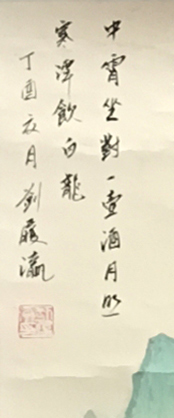 中宵坐對一壺酒月照
寒潭飲白龍
丁酉夜月劉嚴瀛